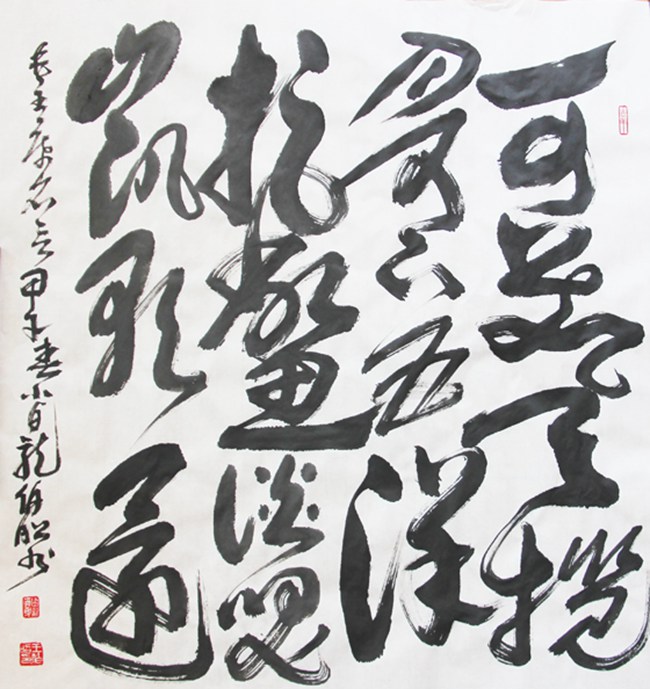 可上九天揽
月可下五洋
捉鳖谈笑
凯歌还
毛主席名言甲午春小白龍